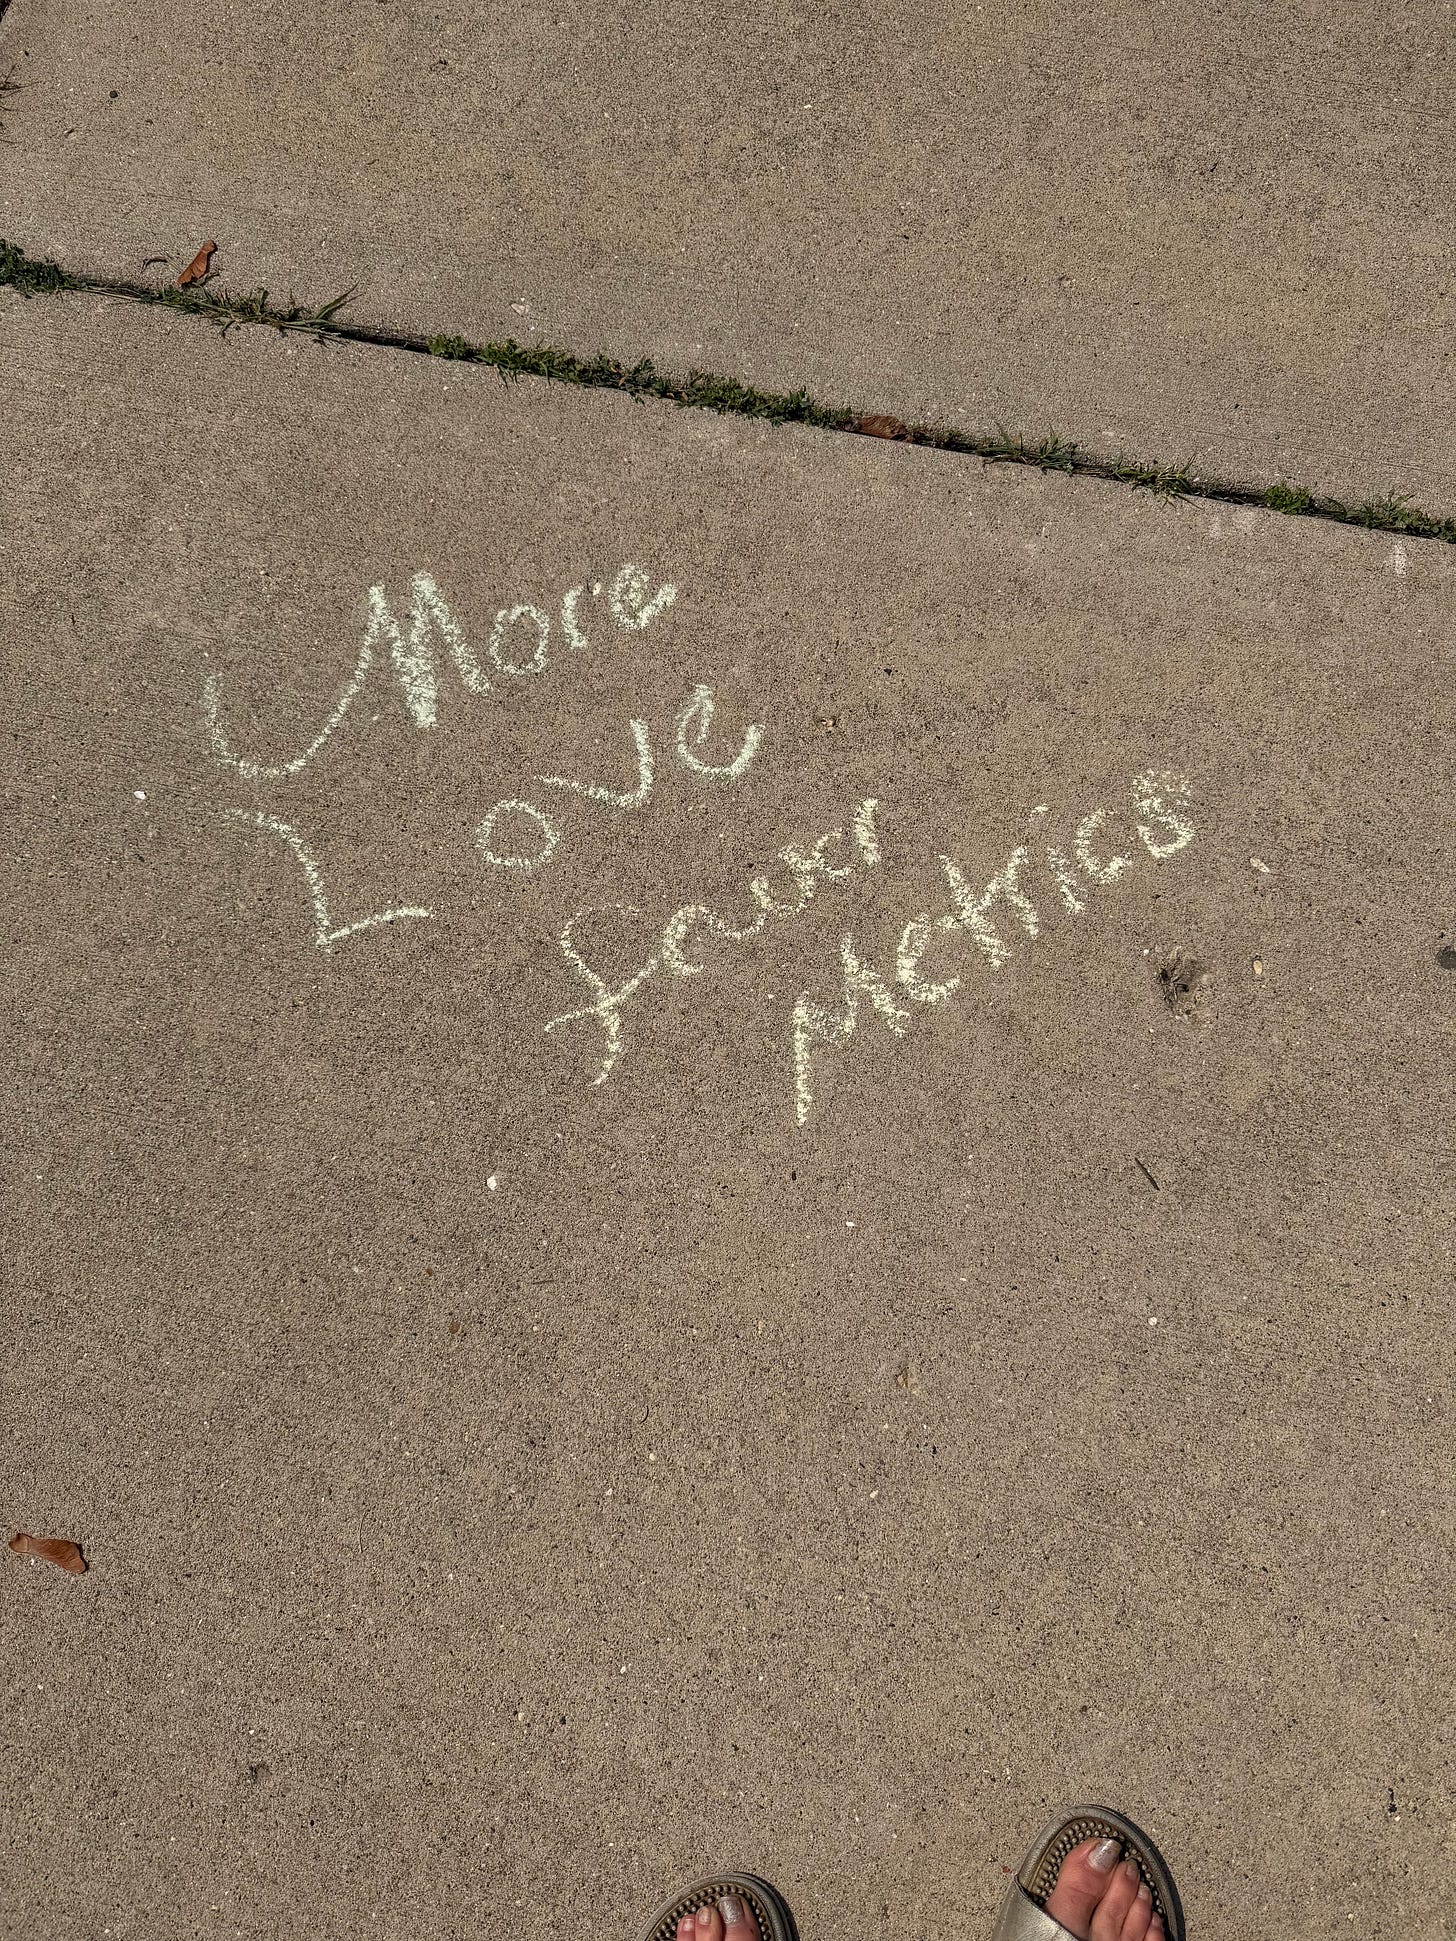 More
Love
fewer
Metrics